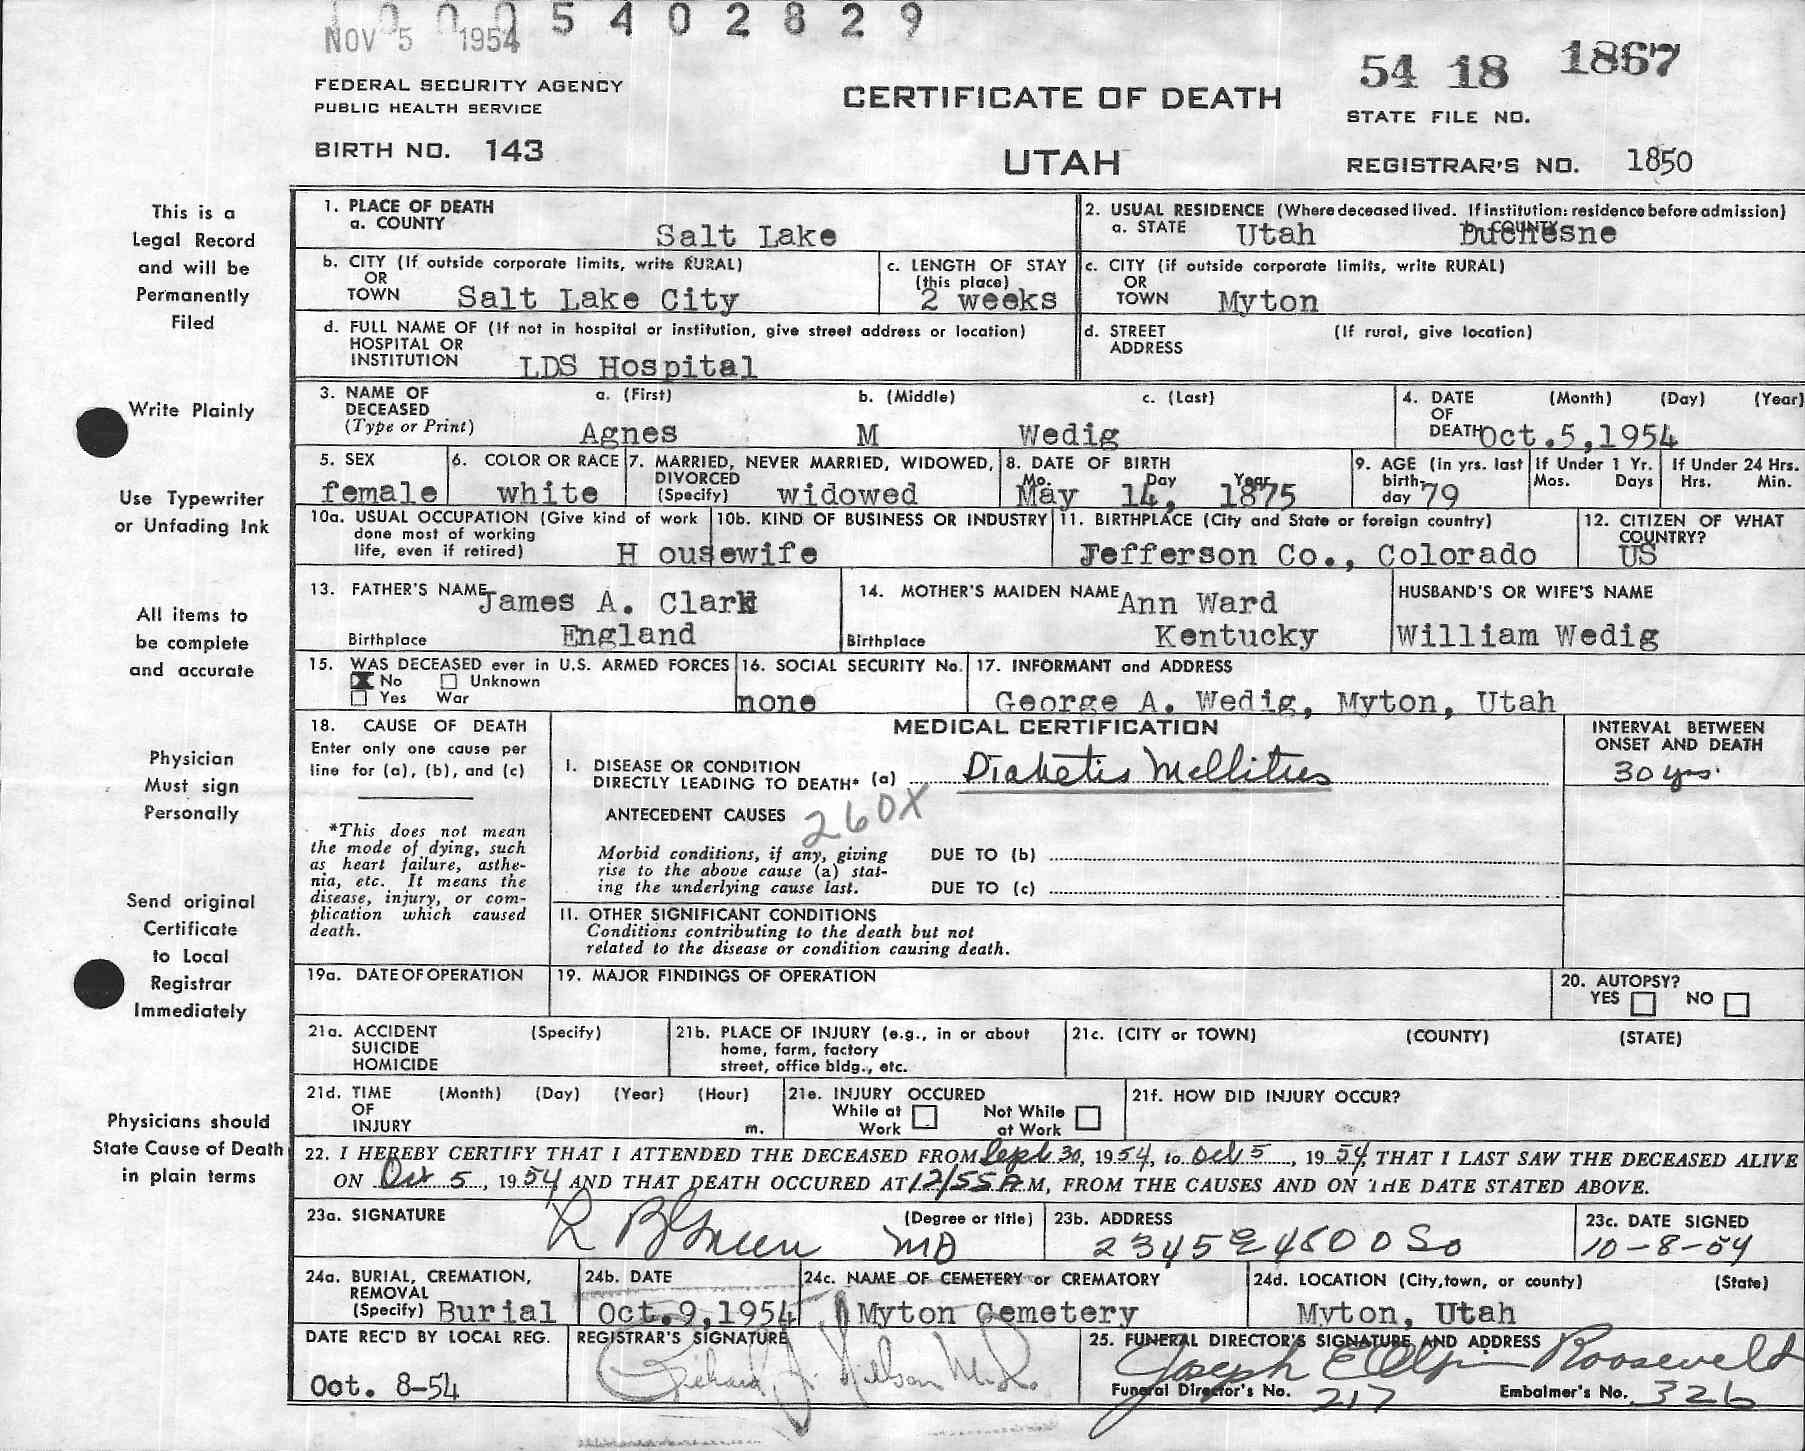 10005402829
NOV 5 1954
54 18 1867
FEDERAL SECURITY AGENCY
PUBLIC HEALTH SERVICE
CERTIFICATE OF DEATH
STATE FILE NO.
BIRTH NO. 143
UTAH
REGISTRAR'S NO. 1850
This is a
Legal Record
and will be
Permanently
Filed
Write Plainly
Use Typewriter
or Unfading Ink
All items to
be complete
and accurate
Physician
Must sign
Personally
Send original
Certificate
to Local
Registrar
Immediately
Physicians should
State Cause of Death
in plain terms
1. PLACE OF DEATH
a. COUNTY Salt Lake
2. USUAL RESIDENCE (Where deceased lived. If institution: residence before admission)
a. STATE Utah b. COUNTY Duchesne
b. CITY (If outside corporate limits, write RURAL)
OR
TOWN Salt Lake City
c. LENGTH OF STAY
(this place)
2 weeks
c. CITY (if outside corporate limits, write RURAL)
OR
TOWN Myton
d. FULL NAME OF (If not in hospital or institution, give street address or location)
HOSPITAL OR
INSTITUTION LDS Hospital
d. STREET (If rural, give location)
ADDRESS
3. NAME OF a. (First) b. (Middle) c. (Last)
DECEASED
(Type or Print) Agnes M Wedig
4. DATE (Month) (Day) (Year)
OF
DEATH Oct.5,1954
5. SEX
female
6. COLOR OR RACE
white
7. MARRIED, NEVER MARRIED, WIDOWED,
DIVORCED
(Specify) widowed
8. DATE OF BIRTH
Mo. Day Year
May 14, 1875
9. AGE (in yrs. last
birth-
day 79
If Under 1 Yr.
Mos. Days
If Under 24 Hrs.
Hrs. Min.
10a. USUAL OCCUPATION (Give kind of work
done most of working
life, even if retired) H ousewife
10b. KIND OF BUSINESS OR INDUSTRY
11. BIRTHPLACE (City and State or foreign country)
Jefferson Co., Colorado
12. CITIZEN OF WHAT
COUNTRY?
US
13. FATHER'S NAME James A. Clark
Birthplace England
14. MOTHER'S MAIDEN NAME Ann Ward
Birthplace Kentucky
HUSBAND'S OR WIFE'S NAME
William Wedig
15. WAS DECEASED ever in U.S. ARMED FORCES
No Unknown
Yes War
16. SOCIAL SECURITY No.
none
17. INFORMANT and ADDRESS
George A. Wedig, Myton, Utah
18. CAUSE OF DEATH
Enter only one cause per
line for (a), (b), and (c)
*This does not mean
the mode of dying, such
as heart failure, asthe-
nia, etc. It means the
disease, injury, or com-
plication which caused
death.
MEDICAL CERTIFICATION
INTERVAL BETWEEN
ONSET AND DEATH
I. DISEASE OR CONDITION
DIRECTLY LEADING TO DEATH* (a) Diabetis Mellitus
30 yrs.
ANTECEDENT CAUSES 260X
Morbid conditions, if any, giving
rise to the above cause (a) stat-
ing the underlying cause last.
DUE TO (b)
DUE TO (c)
II. OTHER SIGNIFICANT CONDITIONS
Conditions contributing to the death but not
related to the disease or condition causing death.
19a. DATE OF OPERATION
19. MAJOR FINDINGS OF OPERATION
20. AUTOPSY?
YES NO
21a. ACCIDENT (Specify)
SUICIDE
HOMICIDE
21b. PLACE OF INJURY (e.g., in or about
home, farm, factory
street, office bldg., etc.
21c. (CITY or TOWN) (COUNTY) (STATE)
21d. TIME (Month) (Day) (Year) (Hour)
OF
INJURY m.
21e. INJURY OCCURED
While at Not While
Work at Work
21f. HOW DID INJURY OCCUR?
22. I HEREBY CERTIFY THAT I ATTENDED THE DECEASED FROM Sept 30, 1954, to Oct 5, 1954, THAT I LAST SAW THE DECEASED ALIVE
ON Oct 5, 1954 AND THAT DEATH OCCURED AT 12/55 A M, FROM THE CAUSES AND ON THE DATE STATED ABOVE.
23a. SIGNATURE (Degree or title)
R B Green MD
23b. ADDRESS
2345 E 4500 So
23c. DATE SIGNED
10-8-54
24a. BURIAL, CREMATION,
REMOVAL
(Specify) Burial
24b. DATE
Oct.9,1954
24c. NAME OF CEMETERY or CREMATORY
Myton Cemetery
24d. LOCATION (City,town, or county) (State)
Myton, Utah
DATE REC'D BY LOCAL REG.
Oct. 8-54
REGISTRAR'S SIGNATURE
Richard J. Nielson M.D.
25. FUNERAL DIRECTOR'S SIGNATURE AND ADDRESS
Joseph E Olpin Roosevelt
Funeral Director's No. 217 Embalmer's No. 326